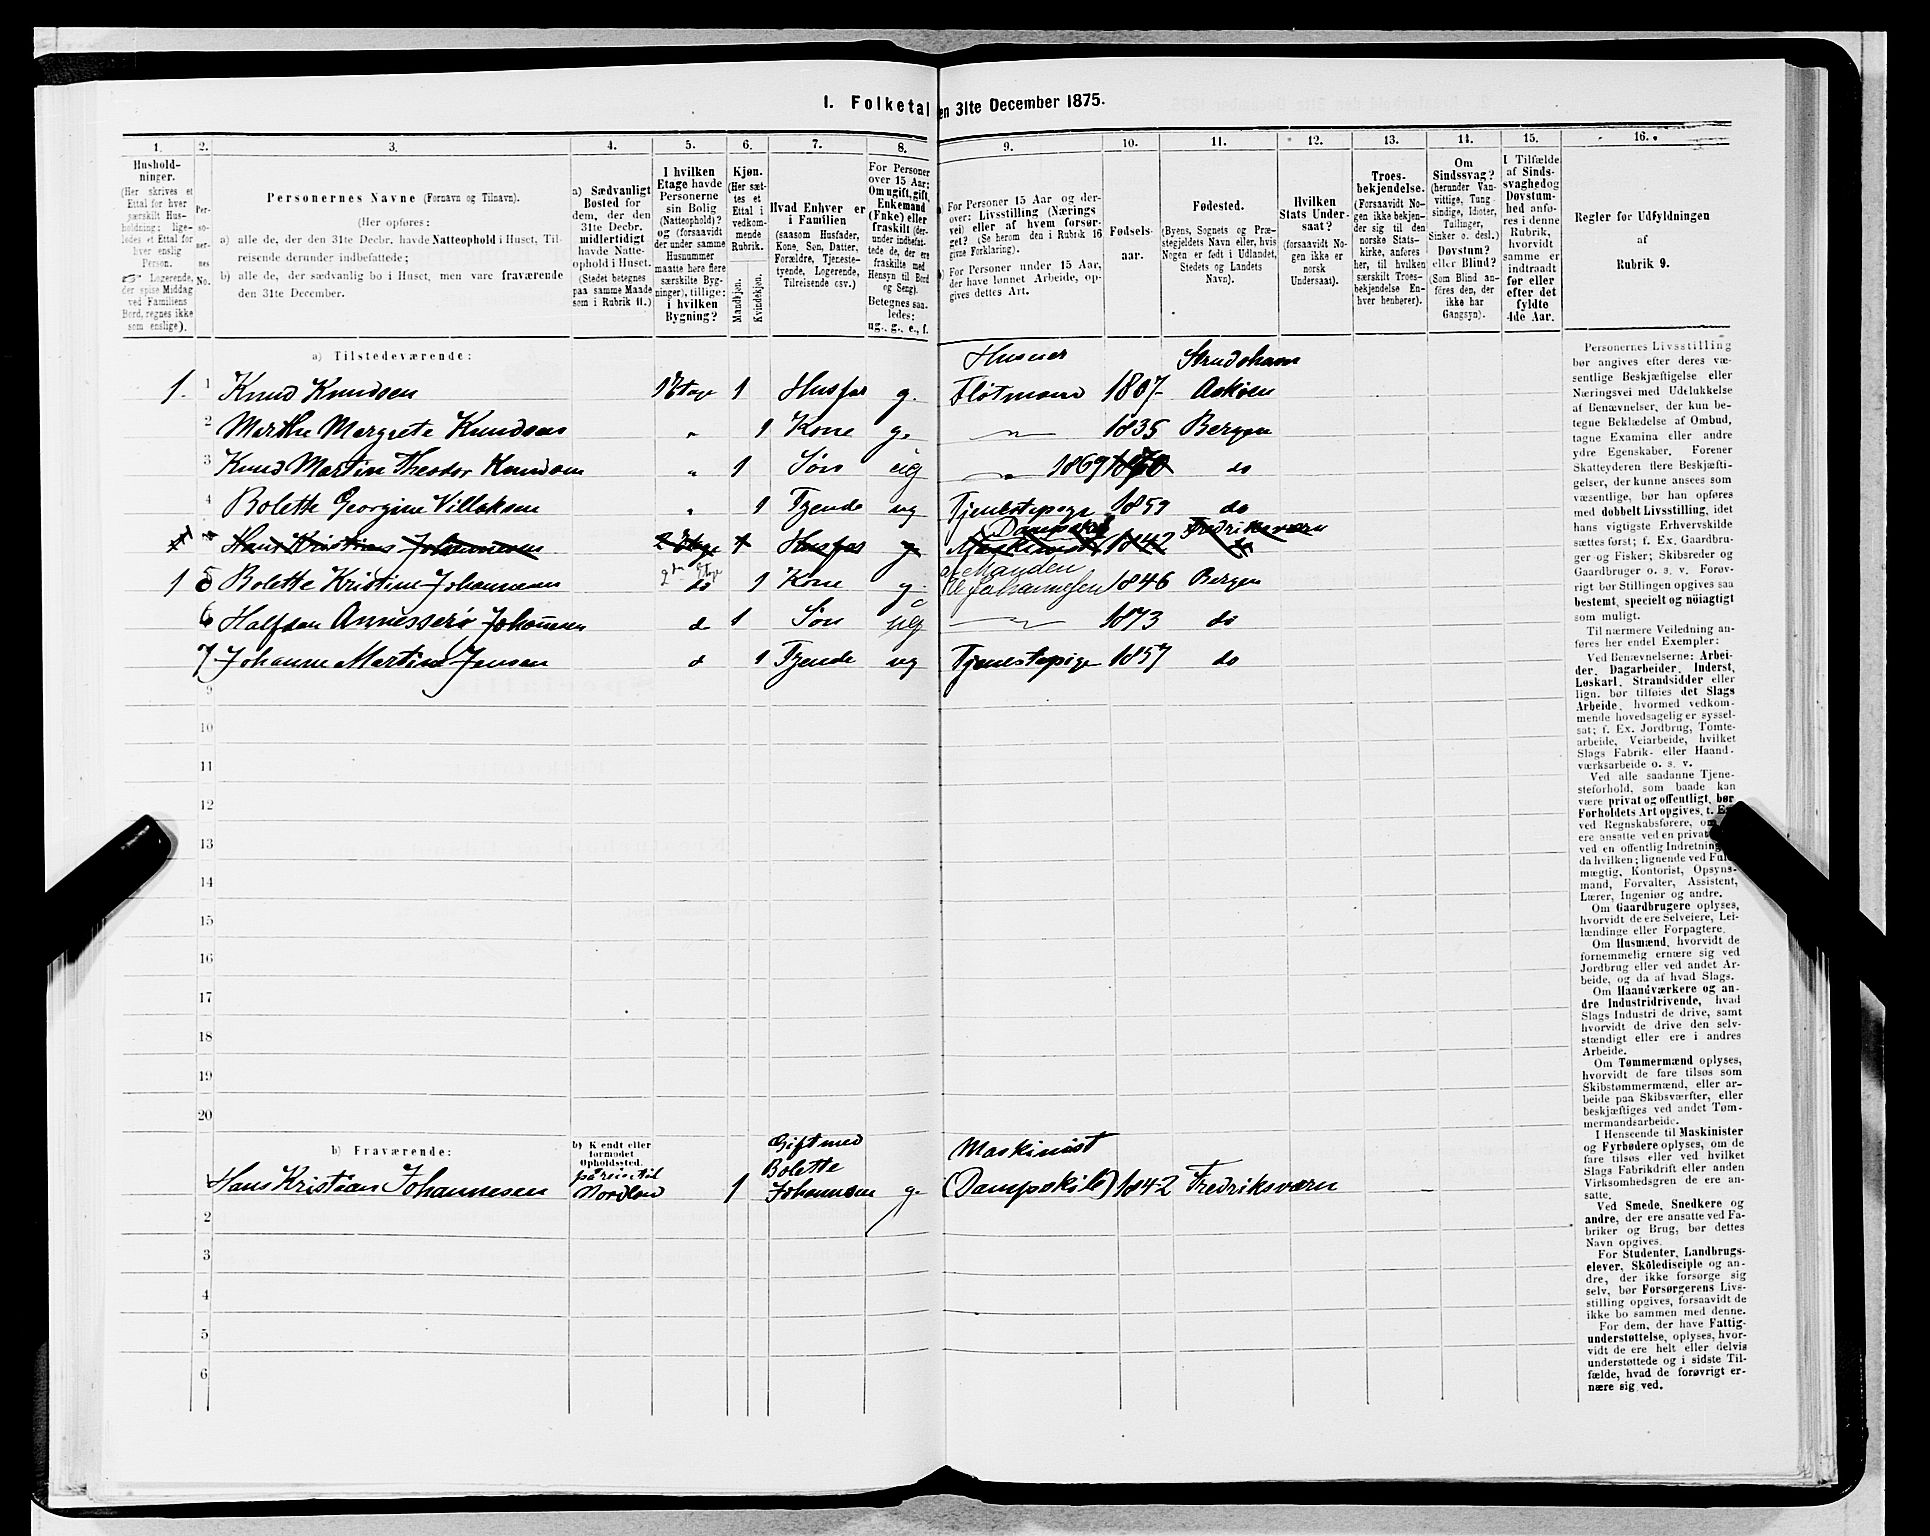 I. Folketal den 31te December 1875.
1.
2.
3.
4.
5.
6.
7.
8.
9.
10.
11.
12.
13.
14.
15.
16.
Hushold-
ninger.
(Her skrives et
Ettal for hver
særskilt Hus-
holdning; lige-
ledes et Ettal for
hver enslig
Person.
Logerende,
der spise Middag
ved Familiens
Bord, regnes ikke
som enslige).
Per-
so-
ner-
nes
No.
Personernes Navne (Fornavn og Tilnavn).
(Her opføres:
a) alle de, der den 31te Decbr. havde Natteophold i Huset, Til-
reisende derunder indbefattede;
b) alle de, der sædvanlig bo i Huset, men vare fraværende
den 31te December.
a) Sædvanligt
Bosted for
dem, der den
31te Decbr.
midlertidigt
havde Natte-
ophold i Huset.
(Stedet betegnes
paa samme Maade
som i Rubrik 11.)
I hvilken
Etage havde
Personerne
sin Bolig
(Natteophold)?
og (forsaavidt
der under samme
Husnummer
maatte høre flere
særskilte Byg-
ninger), tillige:
i hvilken
Bygning?
Kjøn.
(Her sæt-
tes et
Ettal i
vedkom-
mende
Rubrik.
Mandkjøn.
Kvindekjøn.
Hvad Enhver er
i Familien
(saasom Husfader,
Kone, Søn, Datter,
Forældre, Tjeneste-
tyende, Logerende,
Tilreisende osv.)
For Personer
over 15 Aar:
Om ugift, gift,
Enkemand
(Enke) eller
fraskilt (der-
under indbefat-
tede de, der ere
fraskilte med
Hensyn til Bord
og Seng).
Betegnes saa-
ledes:
ug., g., e., f.
For Personer 15 Aar og der-
over: Livsstilling (Nærings
vei) eller af hvem forsør-
get? (Se herom den i Rubrik 16
givne Forklaring).
For Personer under 15 Aar,
der have lønnet Arbeide, op-
gives dettes Art.
Fødsels-
aar.
Fødested.
(Byens, Sognets og Præ-
stegjeldets Navn eller, hvis
Nogen er født i Udlandet,
Stedets og Landets
Navn).
Hvilken
Stats Under-
saat?
(forsaavidt No-
gen ikke er
norsk
Undersaat).
Troes-
bekjendelse.
(Forsaavidt No-
gen ikke bekjen-
der sig til den
norske Stats-
kirke, anføres
her, til hvilken
særskilt Troes-
bekjendelse En-
hver henhører).
Om
Sindssvag?
(herunder Van-
vittige, Tung-
sindige, Idioter,
Tullinger,
Sinker o. desl.)
Døvstum?
eller Blind?
(Som Blind an-
føres den, der
ikke har
Gangsyn).
I Tilfælde
af Sinds-
svaghed og
Døvstum-
hed anfø-
res i denne
Rubrik,
hvorvidt
samme er
indtraadt
før eller
efter det
fyldte
4de Aar.
Regler for Udfyldningen
af
Rubrik 9.
a) Tilstedeværende:
Huseier
1. 1 Knud Knudsen 1 Etage 1 Husfar g. Fløtmand 1807 Askøen
2 Marthe Margrete Knudsen " 1 Kone g. " 1835 Bergen
3 Knud Martin Theodor Knudsen " 1 Søn ug " 1869 1870 do
4 Bolette Georgine Villaksen " 1 Tyende ug Tjenestepige 1859 do
Hans Kristian Johannesen 2 Etage 1 Husfar g. Maskinist 1842 Fredriksværn
2den Etage
af Manden
1 5 Bolette Kristine Johannesen do 1 Kone g. Johannesen 1846 Bergen
6 Halfdan Johannesen d 1 Søn ug " 1873 do
7 Johanne Martine Jensen d 1 Tyende ug Tjenestepige 1857 do
9
10
11
12
13
14
15
16
17
18
19
20
b) Fraværende:
b) Kendt eller
formodet
Opholdssted.
Gift med
Bolette
Johannesen
Maskinist
Hans Kristian Johannesen Nordland 1 g. (Dampskib) 1842 Fredriksværn
2
3
4
5
6
Personernes Livsstilling
bør angives efter deres væ-
sentlige Beskjæftigelse eller
Næringsvei med Udelukkelse
af Benævnelser, der kun be-
tegne Beklædelse af Ombud,
tagne Examina eller andre
ydre Egenskaber. Forener
Skatteyderen flere Beskjæfti-
gelser, der kunne ansees som
væsentlige, bør han opføres
med dobbelt Livsstilling, idet
hans vigtigste Erhvervskilde
sættes først; f. Ex. Gaardbru-
ger og Fisker; Skibsreder og
Gaardbruger o. s. v. Forøv-
rigt bør Stillingen opgives saa
bestemt, specielt og nøiagtigt
som muligt.
Til nærmere Veiledning an-
føres her endel Exempler:
Ved Benævnelserne: Arbei-
der, Dagarbeider, Inderst,
Løskarl, Strandsidder eller
lign. bør tilføies det Slags
Arbeide, hvormed vedkom-
mende hovedsagelig er syssel-
sat; f. Ex. Jordbrug, Tomte-
arbeide, Veiarbeide, hvilket
Slags Fabrik- eller Haand-
værksarbeide o. s. v.
Ved alle saadanne Tjene-
steforhold, som baade kan
være privat og offentligt, bør
Forholdets Art opgives, t. Ex.
ved Regnskabsførere, om de
ere ansatte ved en privat eller
ved en offentlig Indretning og
da hvilken; lignende ved Fuld-
mægtig, Kontorist, Opsyns-
mand, Forvalter, Assistent,
Lærer, Ingeniør og andre.
Om Gaardbrugere oplyses,
hvorvidt de ere Selveiere, Lei-
lændinge eller Forpagtere.
Om Husmænd, hvorvidt de
fornemmelig ernære sig ved
Jordbrug eller ved andet Ar-
beide, og da af hvad Slags.
Om Haandværkere og an-
dre Industridrivende, hvad
Slags Industri de drive, samt
hvorvidt de drive den selv-
stændigt eller ere i andres
Arbeide.
Om Tømmermænd oplyses,
hvorvidt de fare tilsøs som
Skibstømmermænd, eller ar-
beide paa Skibsværfter, eller
beskjæftiges ved andet Tøm-
mermandsarbeide.
I Henseende til Maskinister
og Fyrbødere oplyses, om de
fare tilsøs eller ved hvilket
Slags Fabrikdrift eller anden
Virksomhedsgren de ere an-
satte.
Ved Smede, Snedkere og
andre, der ere ansatte ved Fa-
briker og Brug, bør dettes
Navn opgives.
For Studenter, Landbrugs-
elever, Skoledisciple og an-
dre, der ikke forsørge sig
selv, bør Forsørgerens Livs-
stilling opgives, forsaavidt de
ikke bo sammen med denne.
For dem, der have Fattig-
understøttelse, oplyses, hvor-
vidt de ere helt eller delvis
understøttede og i sidste Til-
fælde, hvad de forøvrigt er-
nære sig ved.